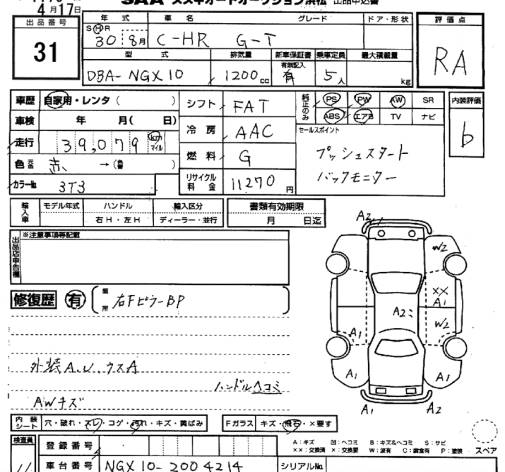 4月17日
SAA スズキオートオークション浜松 出品申込書
出品番号 年式 車名 グレード ドア・形状 評価点
31
S H R
30 8月 C-HR G-T
RA
型式 排気量 新車保証書 乗車定員 最大積載量
有無記入
DBA-NGX10 1200cc 有 5人 kg
車歴 自家用・レンタ( ) シフト FAT 純正のみ PS PW AW SR 内装評価
ABS エアB TV ナビ
車検 年 月( 日) 冷房 AAC セールスポイント
b
走行 39,079 km マイル
プッシュスタート
色 元色 赤 →( 替 ) 燃料 G
バックモニター
カラーNo 3T3 リサイクル料金 11270円
輸入車 モデル年式 ハンドル 輸入区分 書類有効期限
右H・左H ディーラー・並行 月 日迄
出品店申告欄 ※注意事項等記載
修復歴 有 箇所 右FピラーBP
ハンドルヘコミ
AWキズ
A2
W2
XX
A1
A2
W2
A1
A1
A1
A1
A2
内装シート 穴・破れ・スレ・コゲ・汚れ・キズ・黄ばみ Fガラス キズ・飛石・×要す
A:キズ 凹:ヘコミ B:キズ&ヘコミ S:サビ
××:交換済 ×:交換要 W:波有 C:腐食有 P:塗装
スペア
検査員 登録番号
車台番号 NGX10-2004214 シリアルNo.